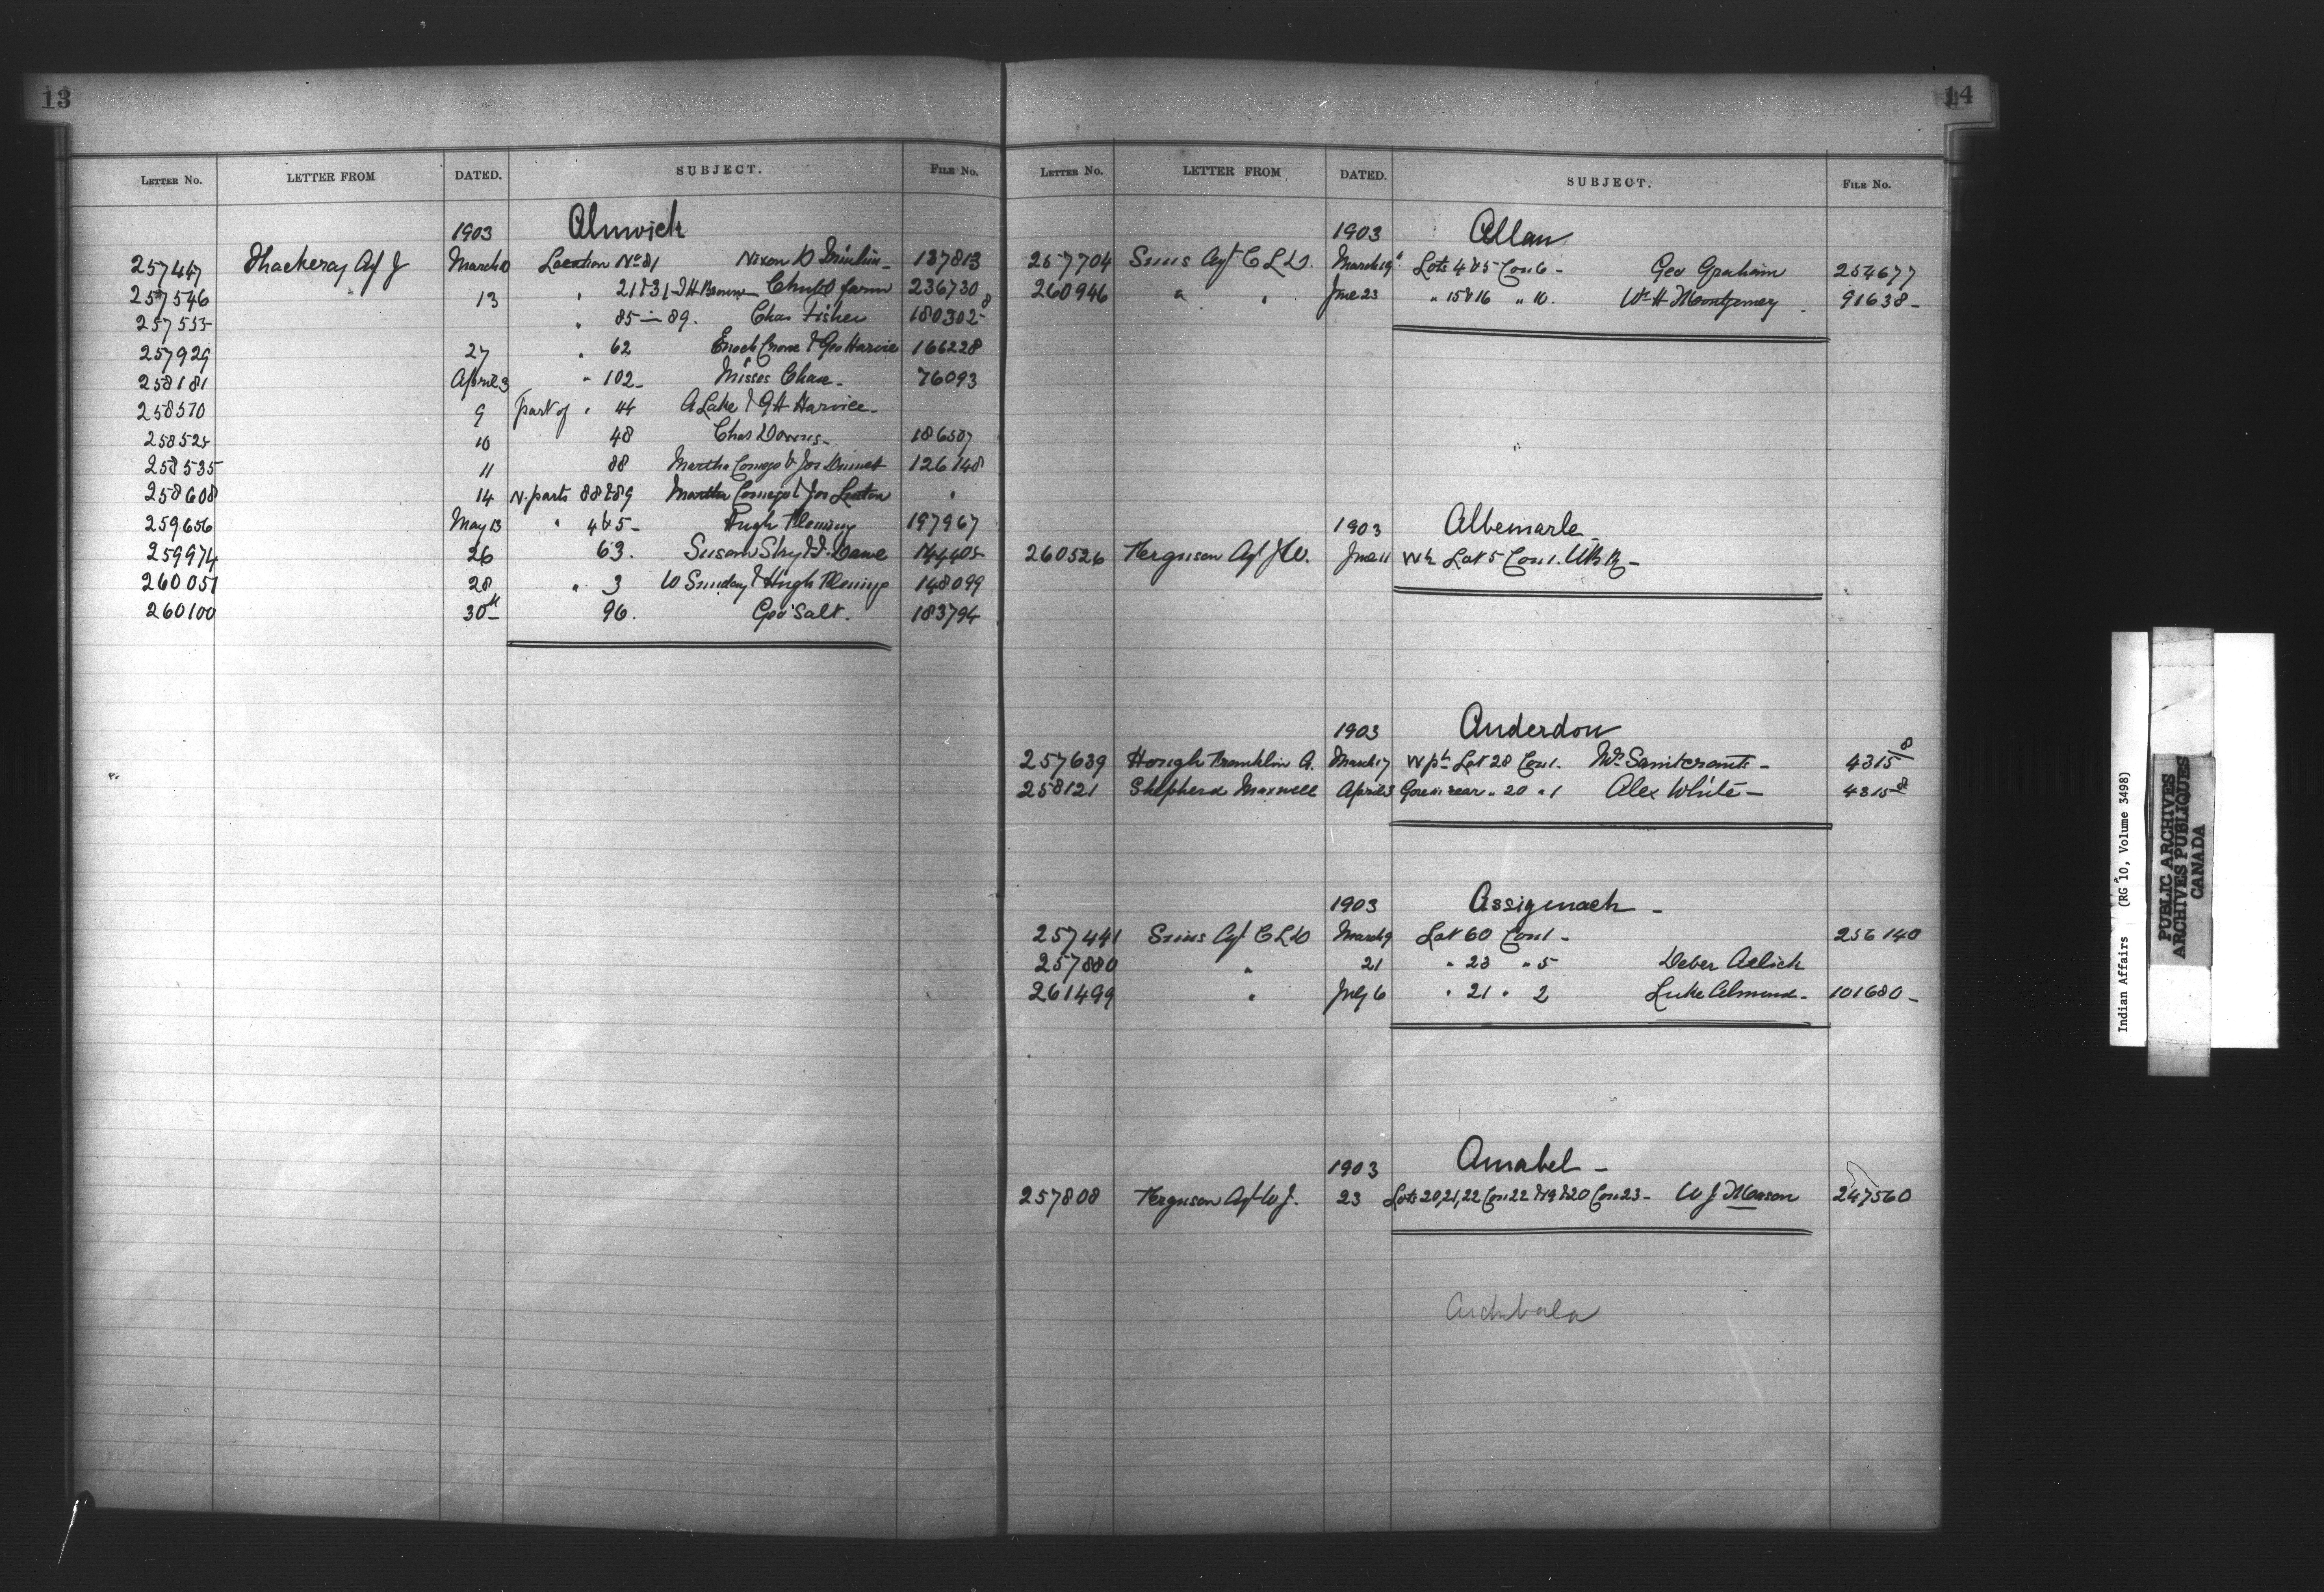 13
LETTER NO. LETTER FROM DATED. SUBJECT. FILE NO.
1903 Alnwick
257447 Thackeray Agt J March 10 Location No 81 Nixon D 137813
257546 13 " 21 & 31 - J H Brown Chubb farm 236730
257555 " 85 - 89. Chas Fisher 180302-8
257929 27 " 62 Enoch Crowe & Geo Harvie 166228
258181 April 3 " 102 - Misses Chase - 76093
258510 9 part of " 44 A Lake & G H Harvie -
258525 10 48 Chas Downs - 186507
258535 11 88 Martha Comego & Jos 126148
258608 14 N. parts 88 & 89 Martha Comego & Jos "
259656 May 13 " 4 & 5 - Hugh Fleming 197967
259974 26 63. Susan Skry & 144405
260051 28 " 3 W Sunday & Hugh Fleming 148099
260100 30th 96. Geo Salt. 183794
14
LETTER NO. LETTER FROM DATED. SUBJECT. FILE NO.
1903 Allan
257704 Sims Agt C L D. March 19 Lots 4 & 5 Con 6 - Geo Graham 254677
260946 " " June 23 " 15 & 16 " 10. Wm H Montgomery 91638 -
1903 Albemarle -
260526 Ferguson Agt J W. June 11 W½ Lot 5 Con 1.
1903 Anderdon
257639 Hough Franklin A. March 17 W pt Lot 28 Con 1. 4315-8
258121 Shepherd Maxwell April 3 Gore in rear " 20 " 1 Alex White - 4315-8
1903 Assiginack -
257441 Sims Agt C L D March 9 Lot 60 Con 1 - 256140
257880 " 21 " 23 " 5
261499 " July 6 " 21 " 2 Luke - 101680 -
1903 Amabel -
257808 Ferguson Agt W J. 23 Lots 20, 21, 22 Con 22 & 19 & 20 Con 23 - W J Mason 247560
Archibald
Indian Affairs (RG 10, Volume 3498)
PUBLIC ARCHIVES
ARCHIVES PUBLIQUES
CANADA